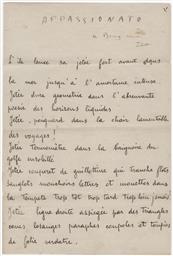 APPASSIONATO
S'il lance sa jetée fort avant dans
la mer jusqu'à l'amertume intense
Jetée dure géométrie dans l'abreuvante
poésie des horizons liquides
Jetée, poignard dans la chair lamentable
des voyages!
Jetée Thermomètre dans la baignoire du
golfe
Jetée couperet de guillotine qui tranche flots
sanglots mouchoirs lettres et mouettes dans
la Tempête Trop tôt trop tard Trop loin jamais!
Jetée ligne droite assiégée par des Triangles
cônes losanges paraphes coupoles et toupies
de folie verdâtre.